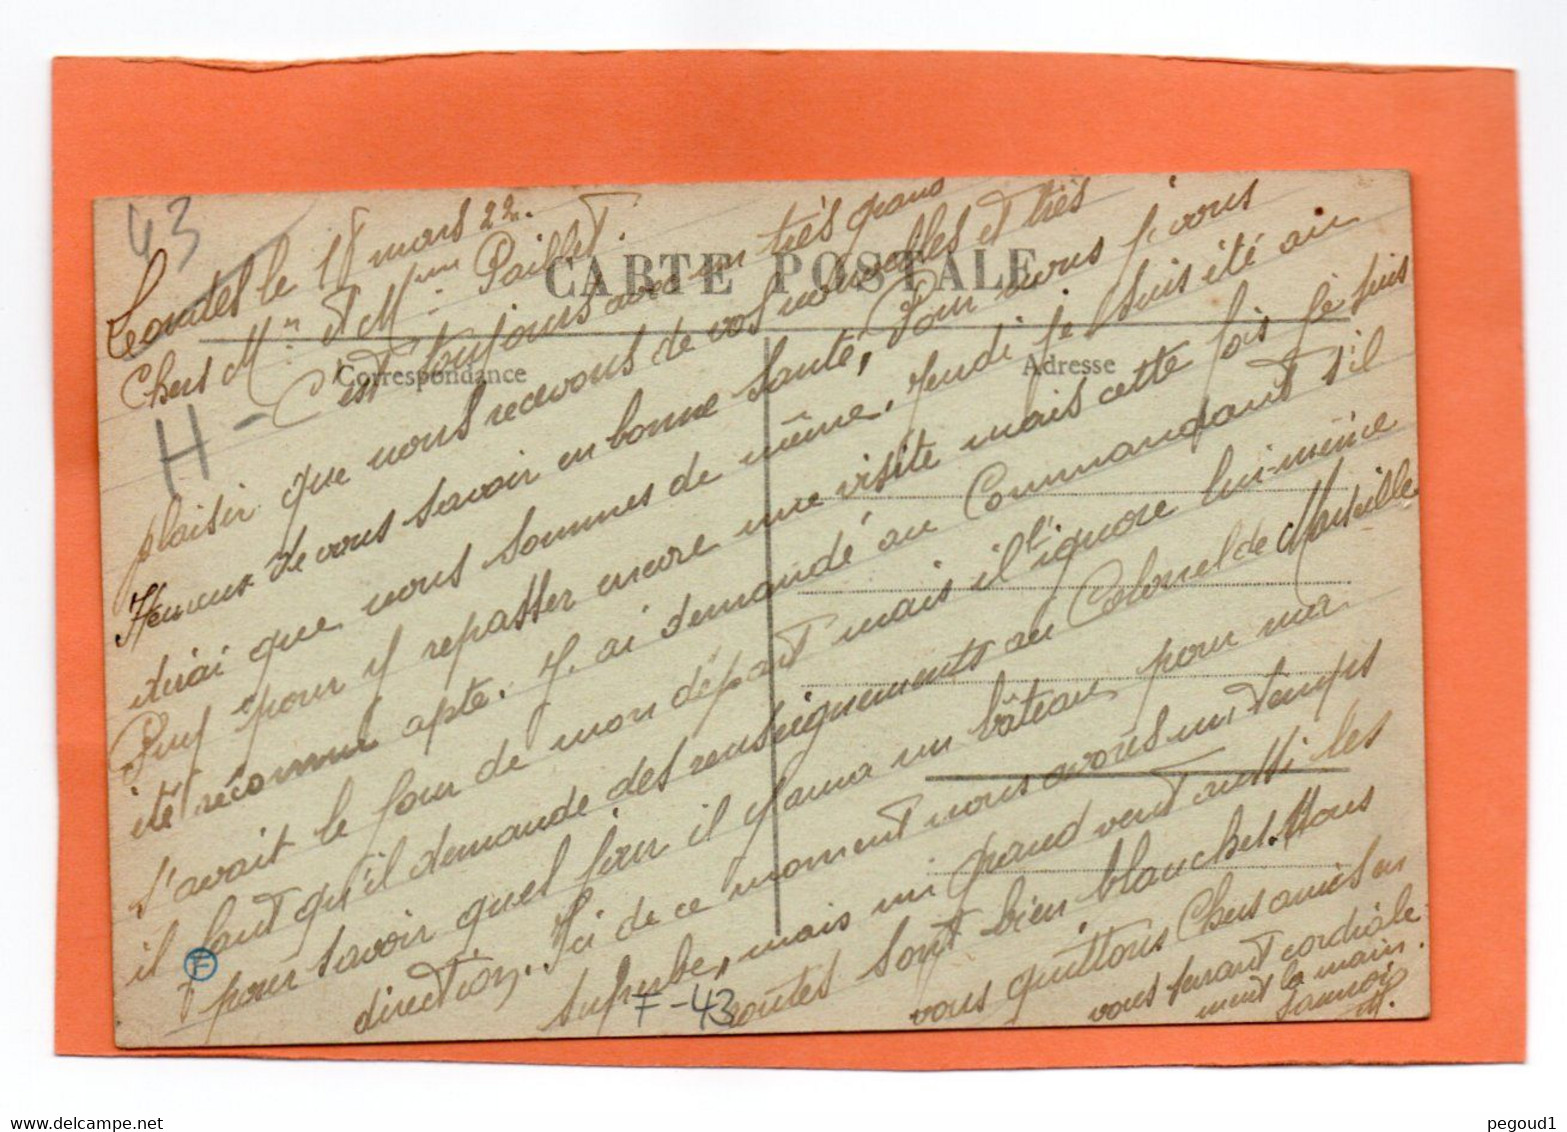 43
le 18 mars 22.
Chers Mr et Mme Paillet.
CARTE POSTALE
Correspondance
Adresse
H - C'est toujours avec un très grand
plaisir que nous recevons de vos nouvelles et très
Heureux de vous savoir en bonne santé, Pour nous je vous
dirai que nous sommes de même. je suis été au
Puy pour y repasser encore une visite mais cette fois je suis
été reconnu apte. J'ai demandé au Commandant s'il
s'avait le jour de mon départ mais il l'ignore lui-même
il faut qu'il demande des renseignements au Colonel de Marseille
pour savoir quel jour il y aura un bâteau pour ma
direction. Ici de ce moment nous avons un temps
superbe, mais un grand vent aussi les
routes sont bien blanches. Nous
vous quittons Chers amis en
vous serrant cordiale
ment la main.
F
F - 43
pegoud1